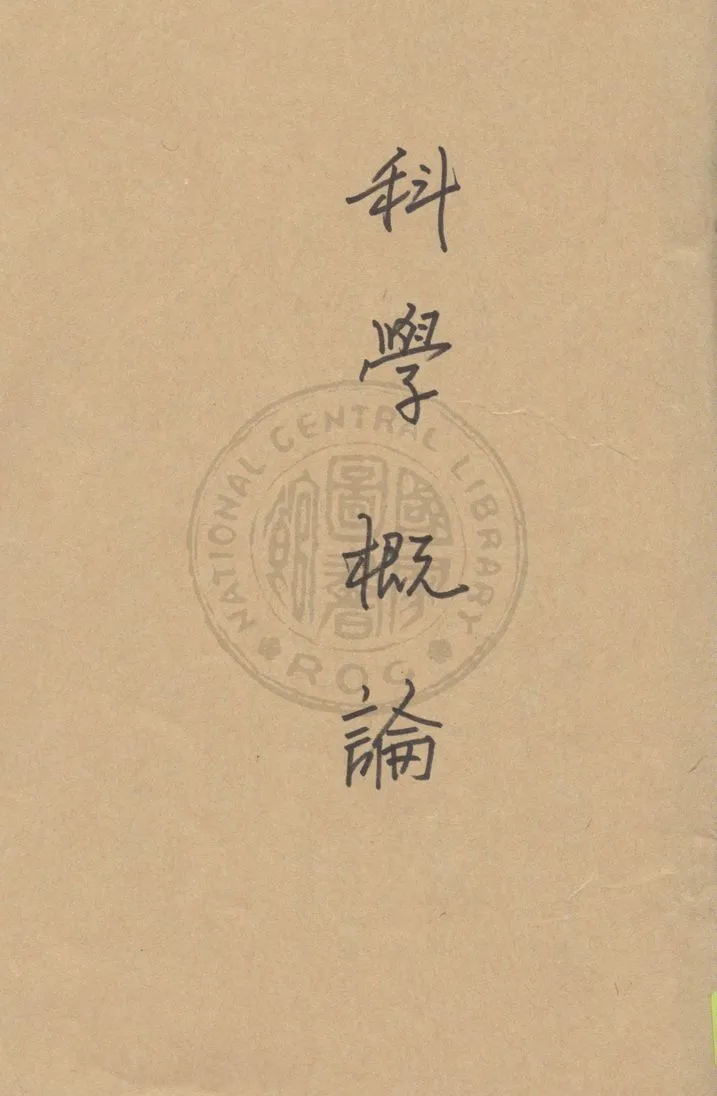 科學概論
NATIONAL CENTRAL LIBRARY
ROC
國家圖書館